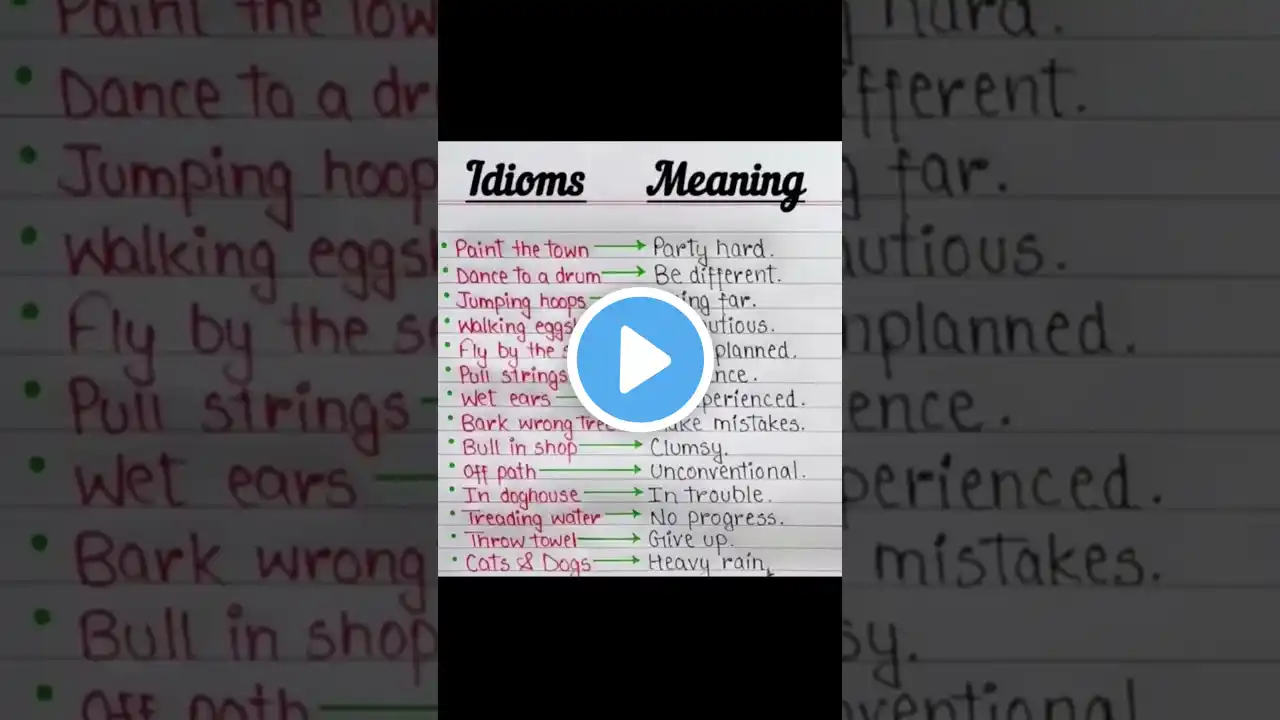 Idioms Meaning
• Paint the town → Party hard.
• Dance to a drum → Be different.
• Jumping hoops far.
• Walking
• Fly by the
• Pull strings
• Wet ears
• Bark wrong mistakes.
• Bull in shop → Clumsy.
• Off path → Unconventional.
• In doghouse → In trouble.
• Treading water → No progress.
• Throw towel → Give up.
• Cats & Dogs → Heavy rain